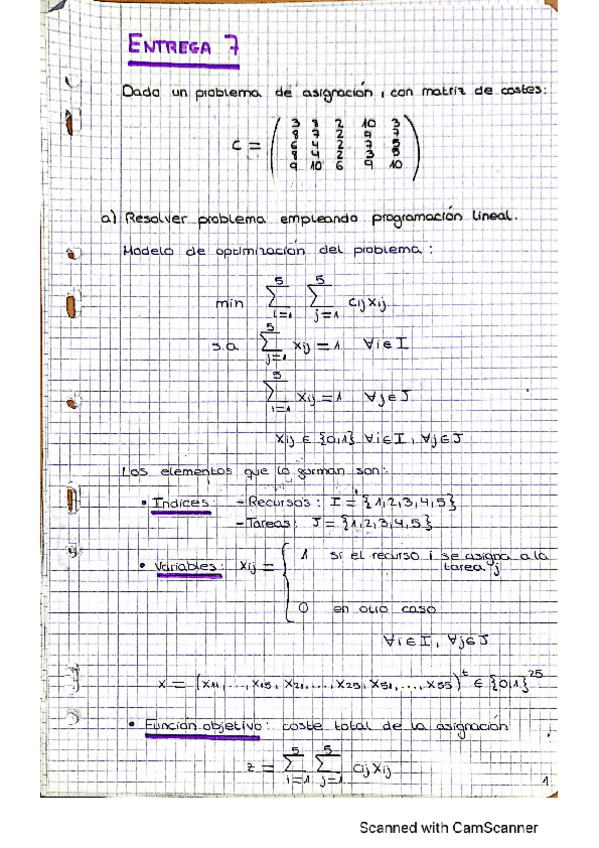 ENTREGA 7
Dado un problema de asignación, con matriz de costes:
C = ( 3 8 2 10 3
8 7 2 9 7
6 4 2 7 5
8 4 2 3 5
9 10 6 9 10 )
a) Resolver problema empleando programación lineal.
Modelo de optimización del problema:
min ∑_{i=1}^{5} ∑_{j=1}^{5} cij xij
s.a ∑_{j=1}^{5} xij = 1 ∀i∈I
∑_{i=1}^{5} xij = 1 ∀j∈J
xij ∈ {0,1} ∀i∈I, ∀j∈J
Los elementos que lo forman son:
• Índices: - Recursos: I = {1,2,3,4,5}
- Tareas: J = {1,2,3,4,5}
• Variables: xij = { 1 si el recurso i se asigna a la
tarea j
0 en otro caso
∀i∈I, ∀j∈J
x = (x11, ..., x15, x21, ..., x25, x51, ..., x55)^t ∈ {0,1}^25
• Función objetivo: coste total de la asignación
z = ∑_{i=1}^{5} ∑_{j=1}^{5} cij xij
1
Scanned with CamScanner